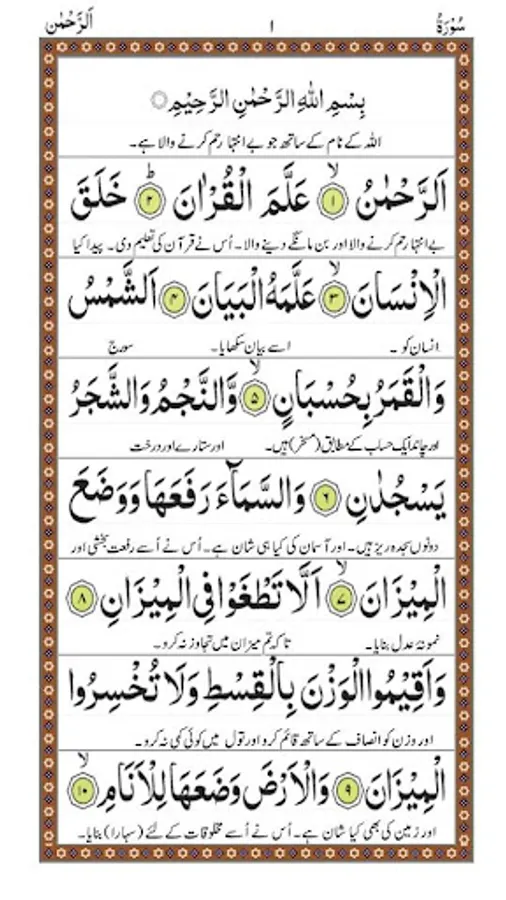 سُوْرَةُ ١ اَلرَّحْمٰن
بِسْمِ اللّٰهِ الرَّحْمٰنِ الرَّحِيْمِ
اللہ کے نام کے ساتھ جو بے انتہا رحم کرنے والا ہے۔
اَلرَّحْمٰنُ ۙ﴿١﴾ عَلَّمَ الْقُرْاٰنَ ؕ﴿٢﴾ خَلَقَ
بے انتہا رحم کرنے والا اور بن مانگے دینے والا۔ اُس نے قرآن کی تعلیم دی۔ پیدا کیا
الْاِنْسَانَ ۙ﴿٣﴾ عَلَّمَهُ الْبَيَانَ ﴿٤﴾ اَلشَّمْسُ
انسان کو۔ اسے بیان سکھایا۔ سورج
وَالْقَمَرُ بِحُسْبَانٍ ۙ﴿٥﴾ وَّالنَّجْمُ وَالشَّجَرُ
اور چاند ایک حساب کے مطابق (مسخر) ہیں۔ اور ستارے اور درخت
يَسْجُدٰنِ ﴿٦﴾ وَالسَّمَآءَ رَفَعَهَا وَوَضَعَ
دونوں سجدہ ریز ہیں۔ اور آسمان کی کیا ہی شان ہے۔ اُس نے اُسے رفعت بخشی اور
الْمِيْزَانَ ۙ﴿٧﴾ اَلَّا تَطْغَوْا فِي الْمِيْزَانِ ﴿٨﴾
نمونۂ عدل بنایا۔ تاکہ تم میزان میں تجاوز نہ کرو۔
وَاَقِيْمُوا الْوَزْنَ بِالْقِسْطِ وَلَا تُخْسِرُوا
اور وزن کو انصاف کے ساتھ قائم کرو اور تول میں کوئی کمی نہ کرو۔
الْمِيْزَانَ ﴿٩﴾ وَالْاَرْضَ وَضَعَهَا لِلْاَنَامِ ۙ﴿١٠﴾
اور زمین کی بھی کیا شان ہے۔ اُس نے اُسے مخلوقات کے لئے (سہارا) بنایا۔